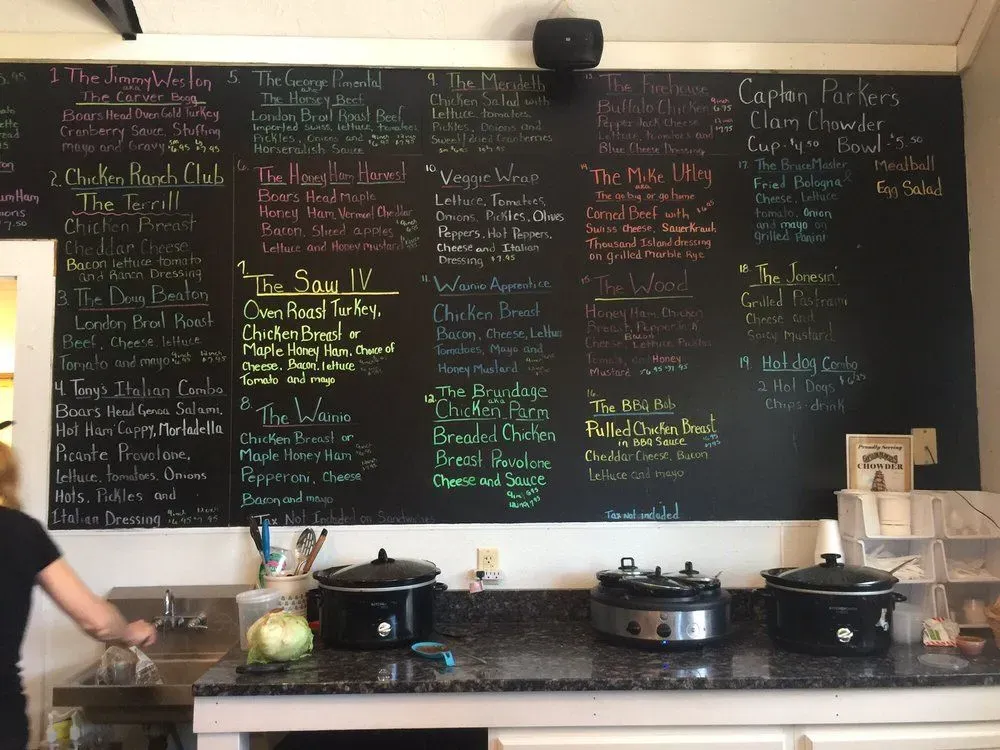 5.95
1 The Jimmy Weston
aka
The Carver Bogg
Boars Head Oven Gold Turkey
Cranberry Sauce, Stuffing
mayo and Gravy sm 6.95 7.95
2. Chicken Ranch Club
The Terrill
Chicken Breast
Cheddar Cheese,
Bacon lettuce tomato
and Ranch Dressing
3. The Doug Beaton
London Broil Roast
Beef, Cheese, lettuce
Tomato and mayo 9 inch 12 inch
6.95 $7.95
4. Tony's Italian Combo
Boars Head Genoa Salami,
Hot Ham Cappy, Mortadella
Picante Provolone,
Lettuce, tomatoes, Onions
Hots, Pickles and
Italian Dressing $6.95 $7.95
Ham
$7.50
5. The George Pimental
aka
The Horsey Beef
London Broil Roast Beef,
Imported Swiss, lettuce, tomatoes,
Pickles, Onions and
Horseradish Sauce
6. The Honey Ham Harvest
Boars Head Maple
Honey Ham, Vermont Cheddar
Bacon, Sliced apples
Lettuce and Honey mustard
7. The Saw IV
Oven Roast Turkey,
Chicken Breast or
Maple Honey Ham, Choice of
Cheese, Bacon, lettuce
Tomato and mayo
8. The Wainio
Chicken Breast or
Maple Honey Ham
Pepperoni, Cheese
Bacon and mayo
Tax Not Included on Sandwiches
9. The Merideth
Chicken Salad with
Lettuce, tomatoes,
Pickles, Onions and
Sweet dried Cranberries
10. Veggie Wrap
Lettuce, Tomatoes,
Onions, Pickles, Olives
Peppers, Hot Peppers,
Cheese and Italian
Dressing $7.95
11. Wainio Apprentice
Chicken Breast
Bacon, Cheese, Lettuce
Tomatoes, Mayo and
Honey Mustard
12. The Brundage
aka
Chicken Parm
Breaded Chicken
Breast Provolone
Cheese and Sauce
9 inch 6.95
12 inch 7.95
13. The Firehouse
Buffalo Chicken 9 inch 6.95
Pepper Jack Cheese, 12 inch
Lettuce, Tomatoes and $7.95
Blue Cheese Dressing
14. The Mike Utley
aka
The go big or go home
Corned Beef with $6.95
Swiss cheese, Sauerkraut,
Thousand Island dressing
on grilled Marble Rye
15. The Wood
Honey Ham, Chicken
Breast, Pepper Jack
Bacon
Cheese, Lettuce, Pickles
Tomato, and Honey
Mustard $6.95 $7.95
16. The BBQ Bob
Pulled Chicken Breast
in BBQ Sauce $6.95
$7.95
Cheddar Cheese, Bacon
Lettuce and mayo
Tax not included
Captain Parkers
Clam Chowder
Cup - $4.50 Bowl - $5.50
17. The Bruce Master
Fried Bologna &
Cheese, Lettuce
tomato, Onion
and mayo on
grilled Panini
Meatball
Egg Salad
18. The Jonesin'
Grilled Pastrami
Cheese and
Spicy Mustard
19. Hot dog Combo
2 Hot Dogs $6.25
Chips - drink
Proudly Serving
CHOWDER